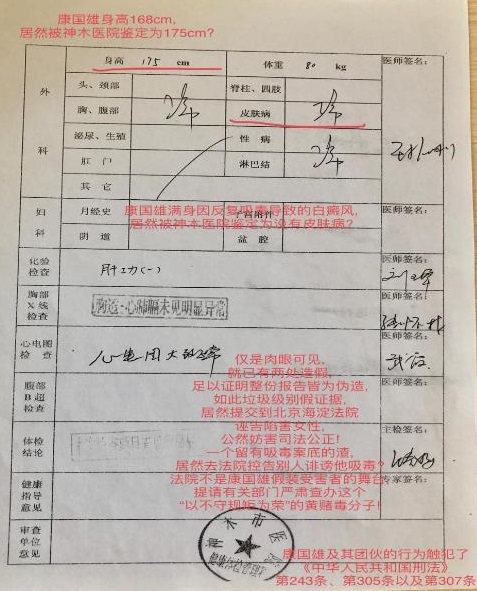 康国雄身高168cm,
居然被神木医院鉴定为175cm?
身高 175 cm 体重 80 kg 医师签名:
头、颈部 脊柱、四肢
外 胸、腹部 皮肤病
泌尿、生殖 性病
科 肛门 淋巴结
其它
妇 月经史 子宫附件 医师签名:
康国雄满身因反复吸毒导致的白癜风,
居然被神木医院鉴定为没有皮肤病?
科 阴道 盆腔
化验 医师签名:
检查 肝功(一)
胸部 医师签名:
X线 胸透:心肺膈未见明显异常
检查
心电图 医师签名:
检查 心电图大致正常
仅是肉眼可见,
就已有两处造假,
腹部 医师签名:
足以证明整份报告皆为伪造,
B超
如此垃圾级别假证据,
检查
居然提交到北京海淀法院
诬告陷害女性,
体检 主检签名:
公然妨害司法公正!
结论
一个留有吸毒案底的渣,
居然去法院控告别人诽谤他吸毒?
健康 专家签名:
法院不是康国雄假装受害者的舞台
指导
提请有关部门严肃查办这个
意见
“以不守规矩为荣”的黄赌毒分子!
审查
单位 神木市医
意见
康国雄及其团伙的行为触犯了
《中华人民共和国刑法》
第243条、第305条以及第307条